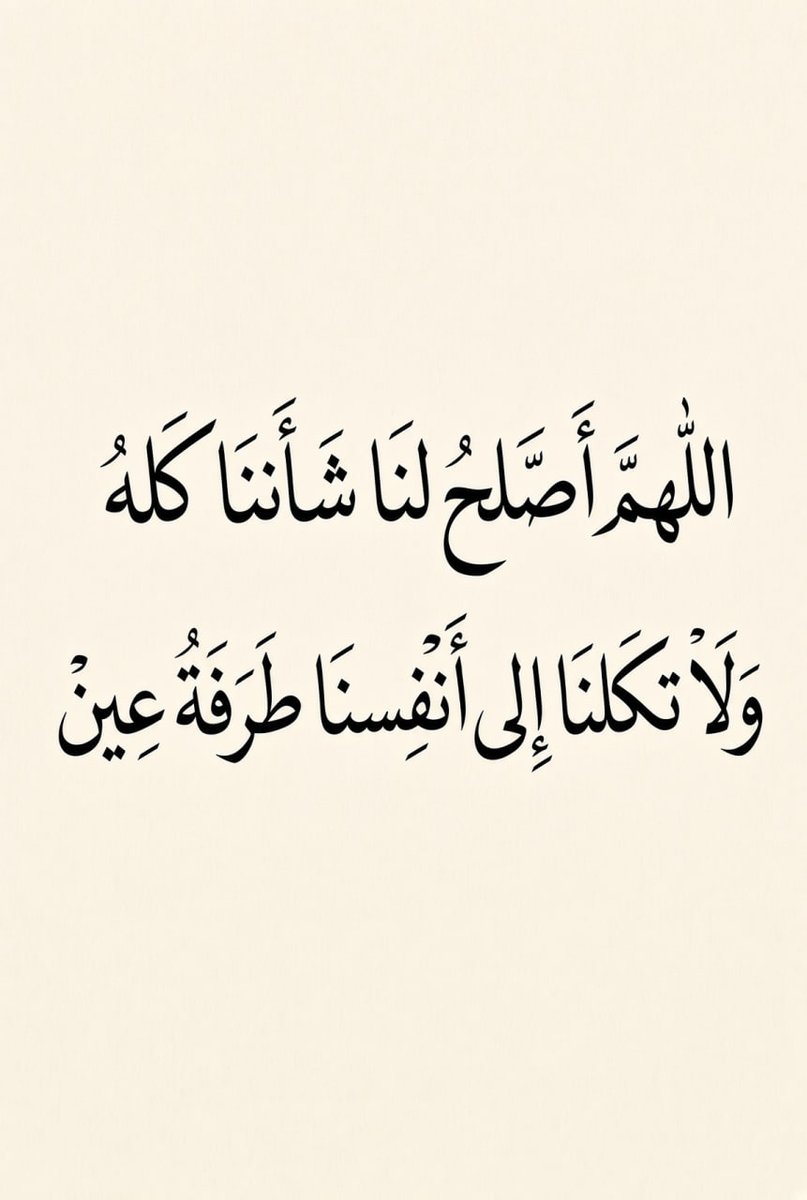 اللّٰهمَّ أَصَّلحُ لنَا شَأَننَا كَلهُ
وَلَاْ تكَلنَا إِلى أَنْفِسنَا طَرَفَةُ عِينْ